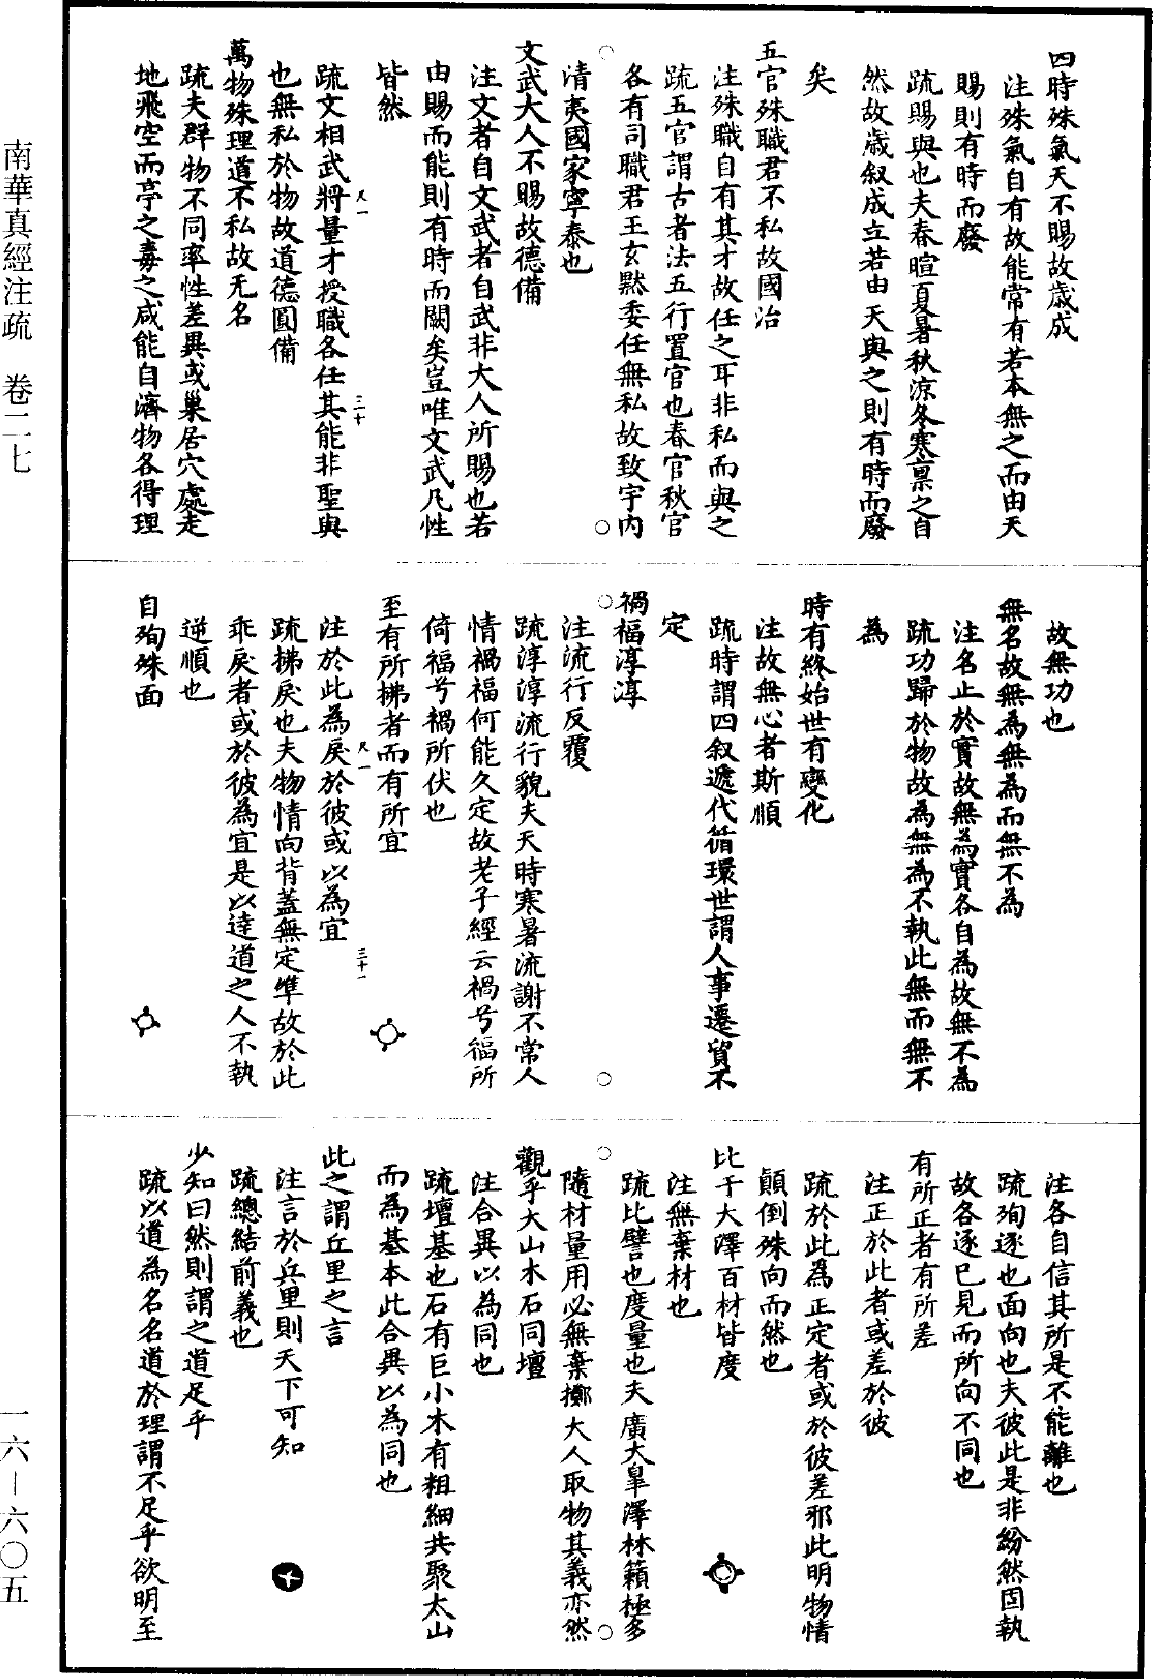 四時殊氣天不賜故歲成
注殊氣自有故能常有若本無之而由天
賜則有時而廢
䟽賜與也夫春暄夏暑秋涼冬寒禀之自
然故歲叙成立若由天與之則有時而廢
矣
五官殊職君不私故國治
注殊職自有其才故任之耳非私而與之
䟽五官謂古者法五行置官也春官秋官
各有司職君王玄默委任無私故致宇內
清夷國家寧泰也
文武大人不賜故德備
注文者自文武者自武非大人所賜也若
由賜而能則有時而闕矣豈唯文武凡性
皆然
尺一
三十
䟽文相武將量才授職各任其能非聖與
也無私於物故道德圓備
萬物殊理道不私故无名
䟽夫群物不同率性差異或巢居穴處走
地飛空而亭之毒之咸能自濟物各得理
故無功也
無名故無為無為而無不為
注名止於實故無為實各自為故無不為
䟽功歸於物故為無為不執此無而無不
為
時有終始世有變化
注故無心者斯順
䟽時謂四叙遞代循環世謂人事遷貿不
定
禍福淳淳
注流行反覆
䟽淳淳流行貌夫天時寒暑流謝不常人
情禍福何能久定故老子經云禍兮福所
倚福兮禍所伏也
至有所拂者而有所宜
尺一
三十一
注於此為戾於彼或以為宜
䟽拂戾也夫物情向背蓋無定準故於此
乖戾者或於彼為宜是以達道之人不執
逆順也
自殉殊面
注各自信其所是不能離也
䟽殉逐也面向也夫彼此是非紛然固執
故各逐己見而所向不同也
有所正者有所差
注正於此者或差於彼
䟽於此為正定者或於彼差邪此明物情
顛倒殊向而然也
比于大澤百材皆度
注無棄材也
䟽比譬也度量也夫廣大皐澤林籟極多
隨材量用必無棄擲大人取物其義亦然
觀乎大山木石同壇
注合異以為同也
䟽壇基也石有巨小木有粗細共聚太山
而為基本此合異以為同也
此之謂丘里之言
注言於丘里則天下可知
䟽總結前義也
少知曰然則謂之道足乎
䟽以道為名名道於理謂不足乎欲明至
南華真經注疏　卷二七
一六—六〇五